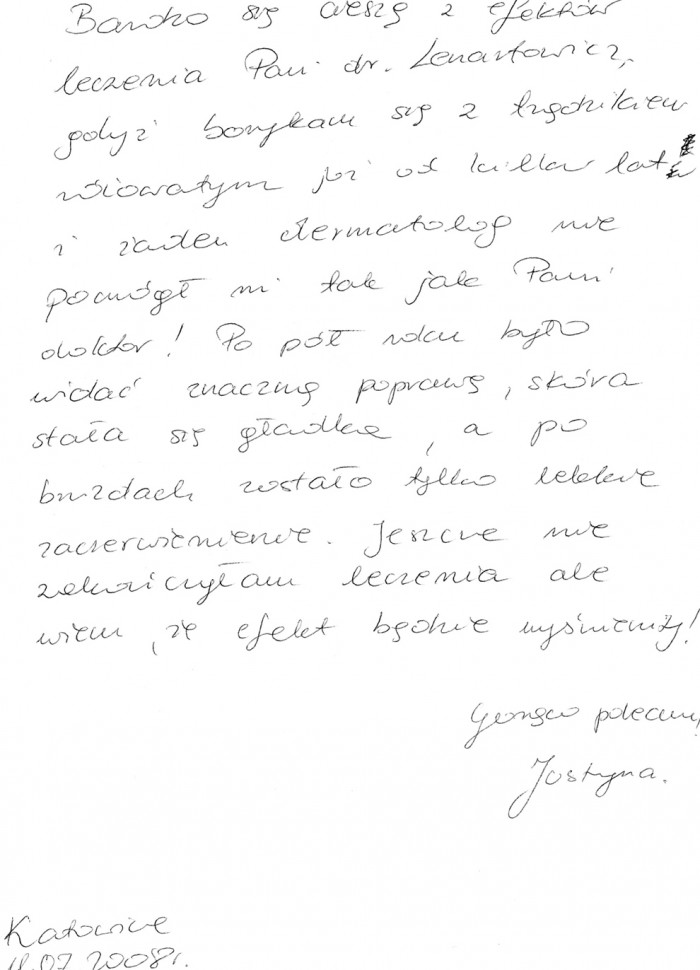 Bardzo się cieszę z efektów
leczenia Pani dr. Lenartowicz,
gdyż borykam się z trądzikiem
różowatym już od kilku lat
i żaden dermatolog nie
pomógł mi tak jak Pani
doktor! Po pół roku było
widać znaczną poprawę, skóra
stała się gładka, a po
bruzdach zostało tylko lekkie
zaczerwienienie. Jeszcze nie
zakończyłam leczenia ale
wiem, że efekt będzie wyśmienity!
Gorąco polecam!
Justyna.
Katowice
11.07.2008r.